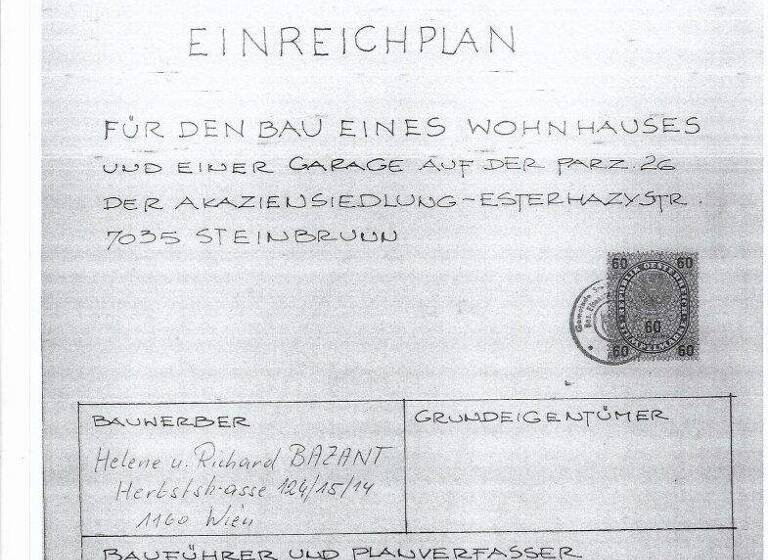 EINREICHPLAN
FÜR DEN BAU EINES WOHNHAUSES
UND EINER GARAGE AUF DER PARZ. 26
DER AKAZIENSIEDLUNG-ESTERHAZYSTR.
7035 STEINBRUNN
60 60
60
60 60
BAUWERBER
GRUNDEIGENTÜMER
Helene u. Richard BAZANT
Herbststrasse 124/15/14
1160 Wien
BAUFÜHRER UND PLANVERFASSER